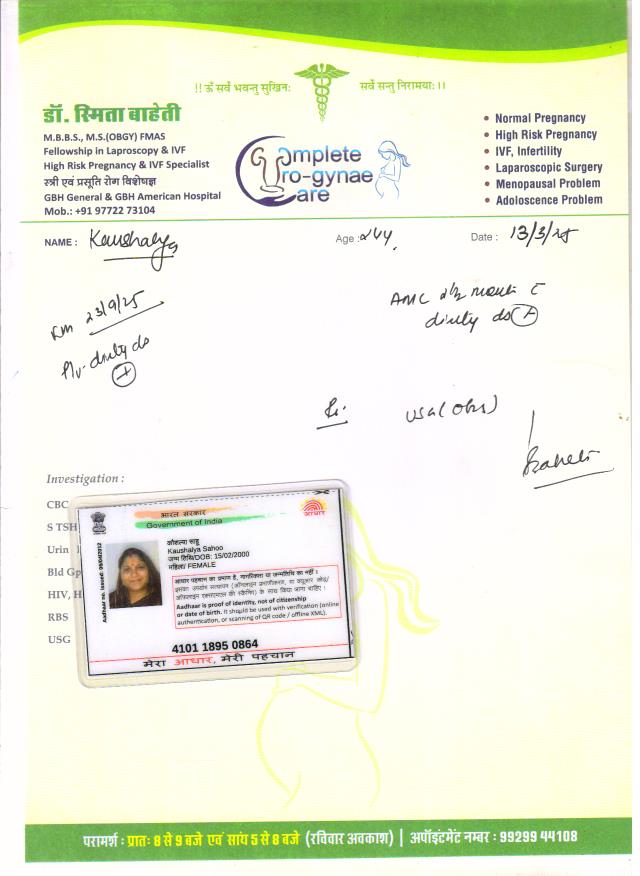 !! ॐ सर्वे भवन्तु सुखिनः सर्वे सन्तु निरामयाः ।।
डॉ. स्मिता बाहेती
M.B.B.S., M.S.(OBGY) FMAS
Fellowship in Laproscopy & IVF
High Risk Pregnancy & IVF Specialist
स्त्री एवं प्रसूति रोग विशेषज्ञ
GBH General & GBH American Hospital
Mob.: +91 97722 73104
Complete
Uro-gynae
Care
• Normal Pregnancy
• High Risk Pregnancy
• IVF, Infertility
• Laparoscopic Surgery
• Menopausal Problem
• Adoloscence Problem
NAME : Kaushalya
Age : 24y
Date : 13/3/25
23/9/25
USG (Obs)
Investigation :
CBC
S TSH
Urin
Bld Gp
HIV, H
RBS
USG
भारत सरकार
Government of India
आधार
Aadhaar no. issued: 08/04/2012
कौशल्या साहू
Kaushalya Sahoo
जन्म तिथि/DOB: 15/02/2000
महिला/ FEMALE
आधार पहचान का प्रमाण है, नागरिकता या जन्मतिथि का नहीं ।
Aadhaar is proof of identity, not of citizenship
or date of birth. It should be used with verification (online
authentication, or scanning of QR code / offline XML).
4101 1895 0864
मेरा आधार, मेरी पहचान
परामर्श : प्रातः 8 से 9 बजे एवं सांय 5 से 8 बजे (रविवार अवकाश) | अपॉइंटमेंट नम्बर : 99299 44108